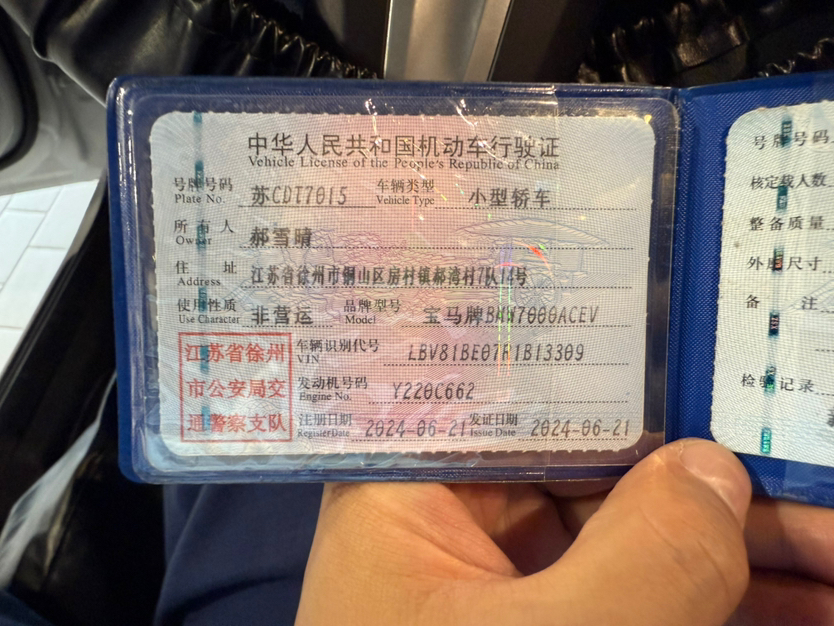 中华人民共和国机动车行驶证
Vehicle License of the People's Republic of China
号牌号码 苏CDT7015 车辆类型 小型轿车
Plate No. Vehicle Type
所有人 郝雪晴
Owner
住址 江苏省徐州市铜山区房村镇郝湾村7队14号
Address
使用性质 非营运 品牌型号 宝马牌BMW7000ACEV
Use Character Model
江苏省徐州
市公安局交
通警察支队
车辆识别代号 LBV81BE07R1B13309
VIN
发动机号码 Y220C662
Engine No.
注册日期 2024-06-21 发证日期 2024-06-21
Register Date Issue Date
号牌号码
核定载人数
整备质量
外廓尺寸
备注
检验记录